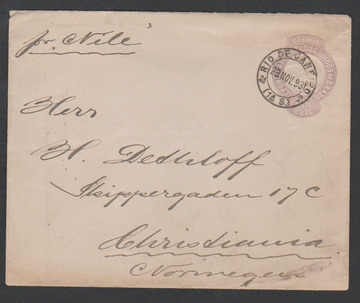 pr. "Nile"
RIO DE JANEIRO
NOV. 93
Herr
H. Dethloff
Skippergaden 17 C
Christiania
Norwegen